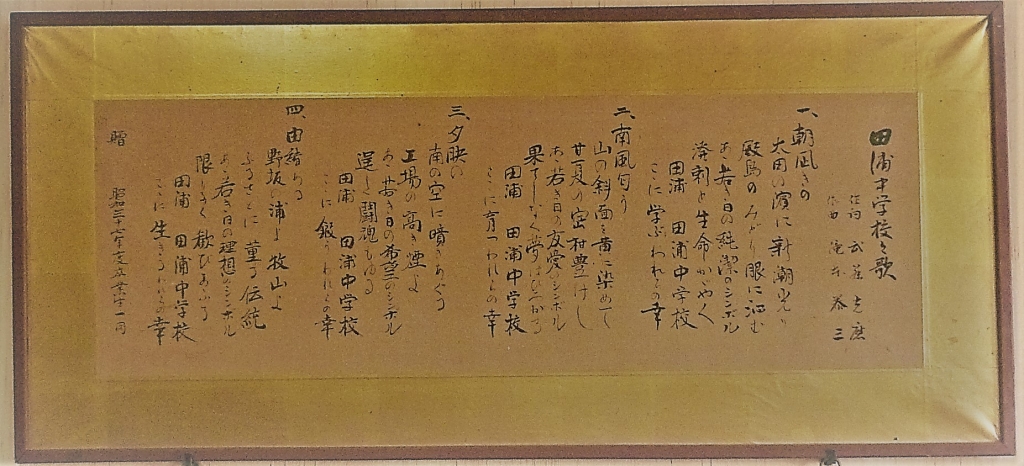 田浦中学校々歌
作詞
作曲 三
一、朝凪ぎの
太田の濱に新潮みてり
島のみどり眼に沁む
あゝ若き日の純潔のシンボル
溌剌と生命かゞやく
田浦 田浦中学校
こゝに学ぶわれらの幸
二、南風匂う
山の斜面を黄に染めて
甘夏の密村豊けし
あゝ若き日の友愛のシンボル
果てしなく夢はひろがる
田浦 田浦中学校
こゝに育つわれらの幸
三、夕映の
南の空に噴きあぐる
工場の高き煙よ
あゝ若き日の希望のシンボル
逞しき闘魂もゆる
田浦 田浦中学校
こゝに鍛うわれらの幸
四、由緒ある
野坂の浦よ牧山よ
ふるさとに薫る伝統
あゝ若き日の理想のシンボル
限りなく歓びあふる
田浦 田浦中学校
こゝに生きるわれらの幸
贈 昭和三十七年度卒業生一同